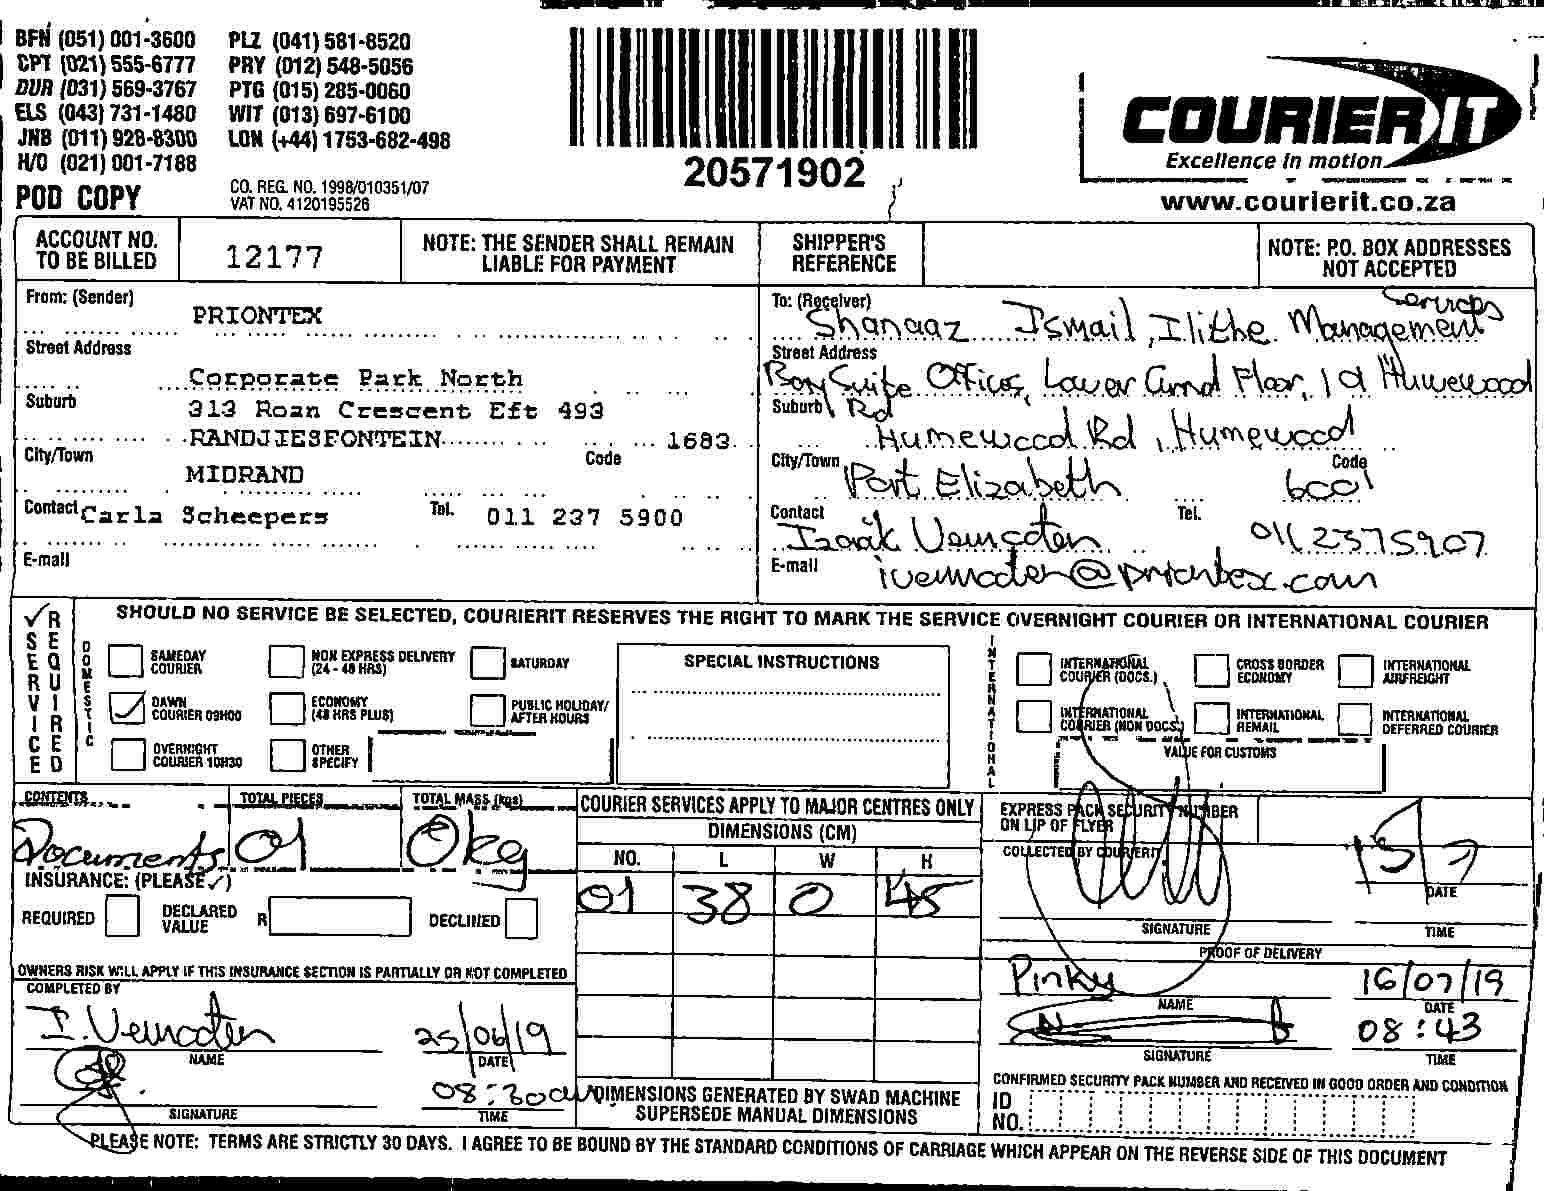 BFN (051) 001-3600 PLZ (041) 581-8520
CPT (021) 555-6777 PRY (012) 548-5056
DUR (031) 569-3767 PTG (015) 285-0060
ELS (043) 731-1480 WIT (013) 697-6100
JNB (011) 928-8300 LON (+44) 1753-682-498
H/O (021) 001-7188
POD COPY
CO. REG. NO. 1998/010351/07
VAT NO. 4120195526
20571902
COURIER IT
Excellence in motion
www.courierit.co.za
ACCOUNT NO. TO BE BILLED
12177
NOTE: THE SENDER SHALL REMAIN LIABLE FOR PAYMENT
SHIPPER'S REFERENCE
NOTE: P.O. BOX ADDRESSES NOT ACCEPTED
From: (Sender)
PRIONTEX
Street Address
Corporate Park North
Suburb
313 Roan Crescent Eft 493
RANDJIESFONTEIN 1683
City/Town Code
MIDRAND
Contact Carla Scheepers Tel. 011 237 5900
E-mail
To: (Receiver) Services
Shanaaz Ismail, Ilithe Management
Street Address
Suite Offices, Lower Grnd Floor, 1 Humewood
Suburb Rd
Humewood Rd, Humewood
City/Town Port Elizabeth Code 6001
Contact Izaak Tel. 011 2375907
E-mail
SERVICE REQUIRED
SHOULD NO SERVICE BE SELECTED, COURIERIT RESERVES THE RIGHT TO MARK THE SERVICE OVERNIGHT COURIER OR INTERNATIONAL COURIER
DOMESTIC
SAMEDAY COURIER
NON EXPRESS DELIVERY (24 - 48 HRS)
SATURDAY
DAWN COURIER 09H00
ECONOMY (48 HRS PLUS)
PUBLIC HOLIDAY/ AFTER HOURS
OVERNIGHT COURIER 10H30
OTHER SPECIFY
SPECIAL INSTRUCTIONS
INTERNATIONAL
INTERNATIONAL COURIER (DOCS.)
CROSS BORDER ECONOMY
INTERNATIONAL AIRFREIGHT
INTERNATIONAL COURIER (NON DOCS.)
INTERNATIONAL REMAIL
INTERNATIONAL DEFERRED COURIER
VALUE FOR CUSTOMS
CONTENTS TOTAL PIECES TOTAL MASS (kgs)
Documents 01 0kg
INSURANCE: (PLEASE ✓)
REQUIRED DECLARED VALUE R DECLINED
OWNERS RISK WILL APPLY IF THIS INSURANCE SECTION IS PARTIALLY OR NOT COMPLETED
COMPLETED BY
I. 25/06/19
NAME DATE
08:30am
SIGNATURE TIME
COURIER SERVICES APPLY TO MAJOR CENTRES ONLY
DIMENSIONS (CM)
NO. L W H
01 38 0 45
DIMENSIONS GENERATED BY SWAD MACHINE SUPERSEDE MANUAL DIMENSIONS
EXPRESS PACK SECURITY NUMBER ON LIP OF FLYER
COLLECTED BY COURIERIT
15/7
DATE
SIGNATURE TIME
PROOF OF DELIVERY
Pinky 16/07/19
NAME DATE
08:43
SIGNATURE TIME
CONFIRMED SECURITY PACK NUMBER AND RECEIVED IN GOOD ORDER AND CONDITION
ID NO.
PLEASE NOTE: TERMS ARE STRICTLY 30 DAYS. I AGREE TO BE BOUND BY THE STANDARD CONDITIONS OF CARRIAGE WHICH APPEAR ON THE REVERSE SIDE OF THIS DOCUMENT